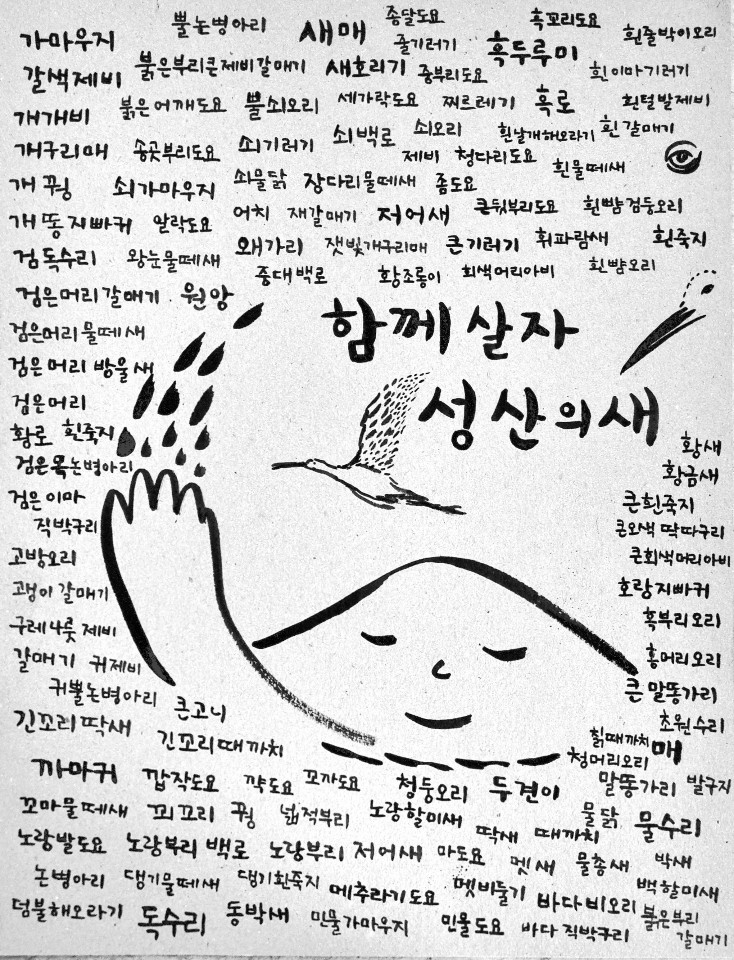 가마우지 뿔논병아리 새매 종달도요 흑꼬리도요 흰줄박이오리
줄기러기 흑두루미
갈색제비 붉은부리큰제비갈매기 새호리기 중부리도요 흰이마기러기
개개비 붉은어깨도요 뿔쇠오리 세가락도요 찌르레기 흑로 흰털발제비
개구리매 송곳부리도요 쇠기러기 쇠백로 쇠오리 흰날개해오라기 흰갈매기
제비 청다리도요 흰물떼새
개꿩 쇠가마우지 쇠물닭 장다리물떼새 좀도요
개똥지빠귀 알락도요 어치 재갈매기 저어새 큰뒷부리도요 흰뺨검둥오리
검독수리 왕눈물떼새 왜가리 잿빛개구리매 큰기러기 휘파람새 흰죽지
중대백로 황조롱이 회색머리아비 흰뺨오리
검은머리갈매기 원앙
함께 살자
성산의새
검은머리물떼새
검은머리 방울새
검은머리
황로 흰죽지
검은목논병아리
검은이마
직박구리
고방오리
괭이갈매기
구레나룻제비
갈매기 귀제비
귀뿔논병아리 큰고니
긴꼬리딱새 긴꼬리때까치
황새
황금새
큰흰죽지
큰오색 딱따구리
큰회색머리아비
호랑지빠귀
흑부리오리
홍머리오리
큰말똥가리
초원수리
칡때까치 매
청머리오리
까마귀 깝작도요 꺅도요 꼬까도요 청둥오리 두견이 말똥가리 발구지
꼬마물떼새 꾀꼬리 꿩 넓적부리 노랑할미새 딱새 때까치 물닭 물수리
노랑발도요 노랑부리백로 노랑부리저어새 마도요 멧새 물총새 박새
논병아리 댕기물떼새 댕기흰죽지 메추라기도요 멧비둘기 바다비오리 백할미새
덤불해오라기 독수리 동박새 민물가마우지 민물도요 바다직박구리 붉은부리
갈매기